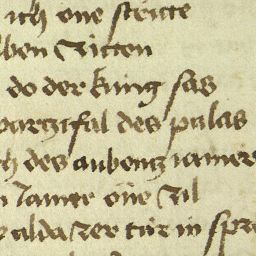 ich one stritte
bben Ritten
do der kung sas
parzifal des palas
ch des aubentz iamer
n Jamer one zil
alda zer tür in spr